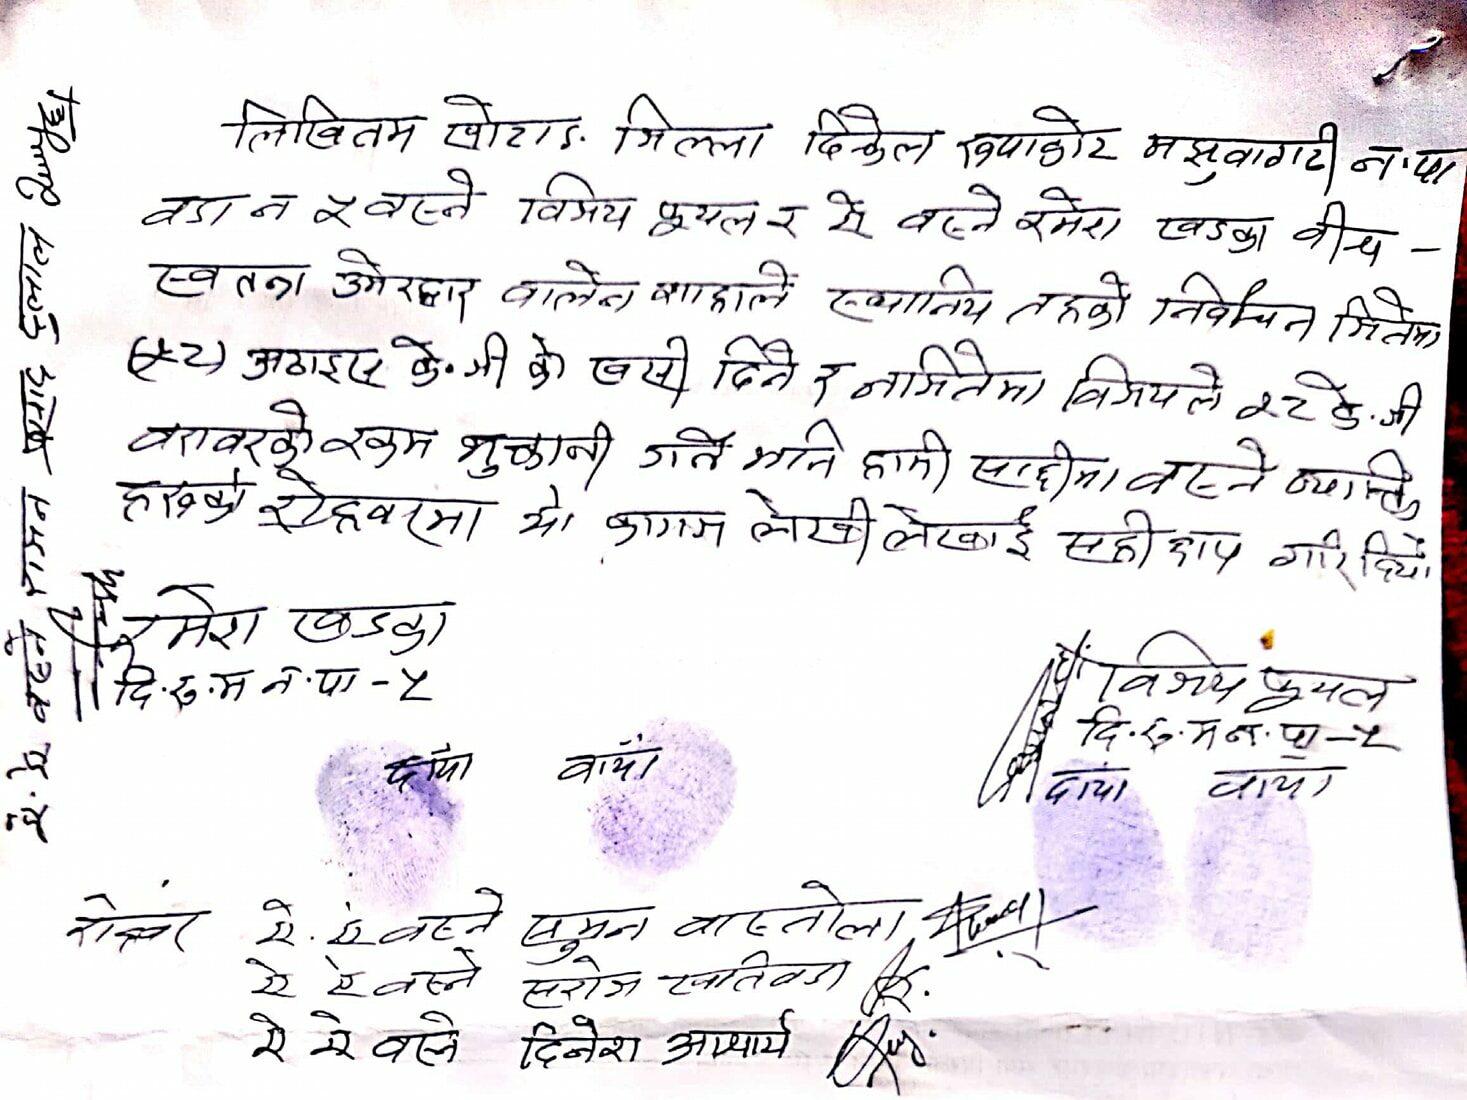 लिखितम खोटाङ जिल्ला दिक्तेल रुपाकोट मझुवागढी न.पा
वडा न ५ वस्ने विजय फूयल र ऐ वस्ने रमेश खडका वीच -
स्वतन्त्र उमेरद्वार वालेन शाहाले स्थानिय तहको निर्वाचन जितेमा
(२८) अठाइस के.जी को खसी दिने र नजितेमा विजयले २८ के.जी
वरावरको रकम भुक्तानी गर्ने भनि हामी साक्षीमा वस्ने व्याक्ति
हरुको रोहवरमा यो कागज लेखी लेखाई सही छाप गरि दियौ
रमेश खडका
दि.रु.म न.पा -५
दाँया वाँया
विजय फूयल
दि.रु.म न.पा -५
दाँया वाँया
रोहवर ऐ. ऐ वस्ने सुमन वास्तोला
ऐ ऐ वस्ने सरोज खतिवडा
ऐ ऐ वस्ने दिनेश आचार्य
ऐ. ऐ वस्ने राजन प्रसाद दुलाल